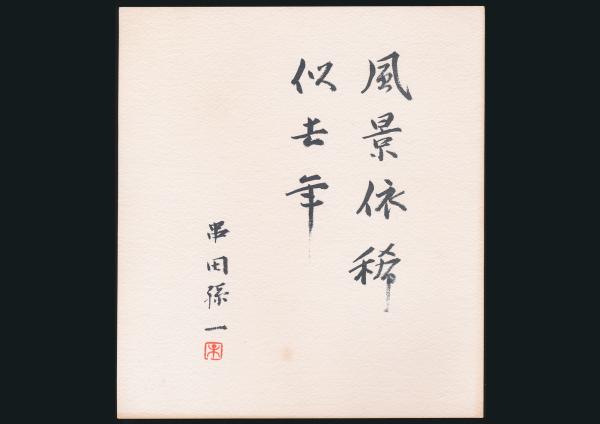 風景依稀
似去年
串田孫一